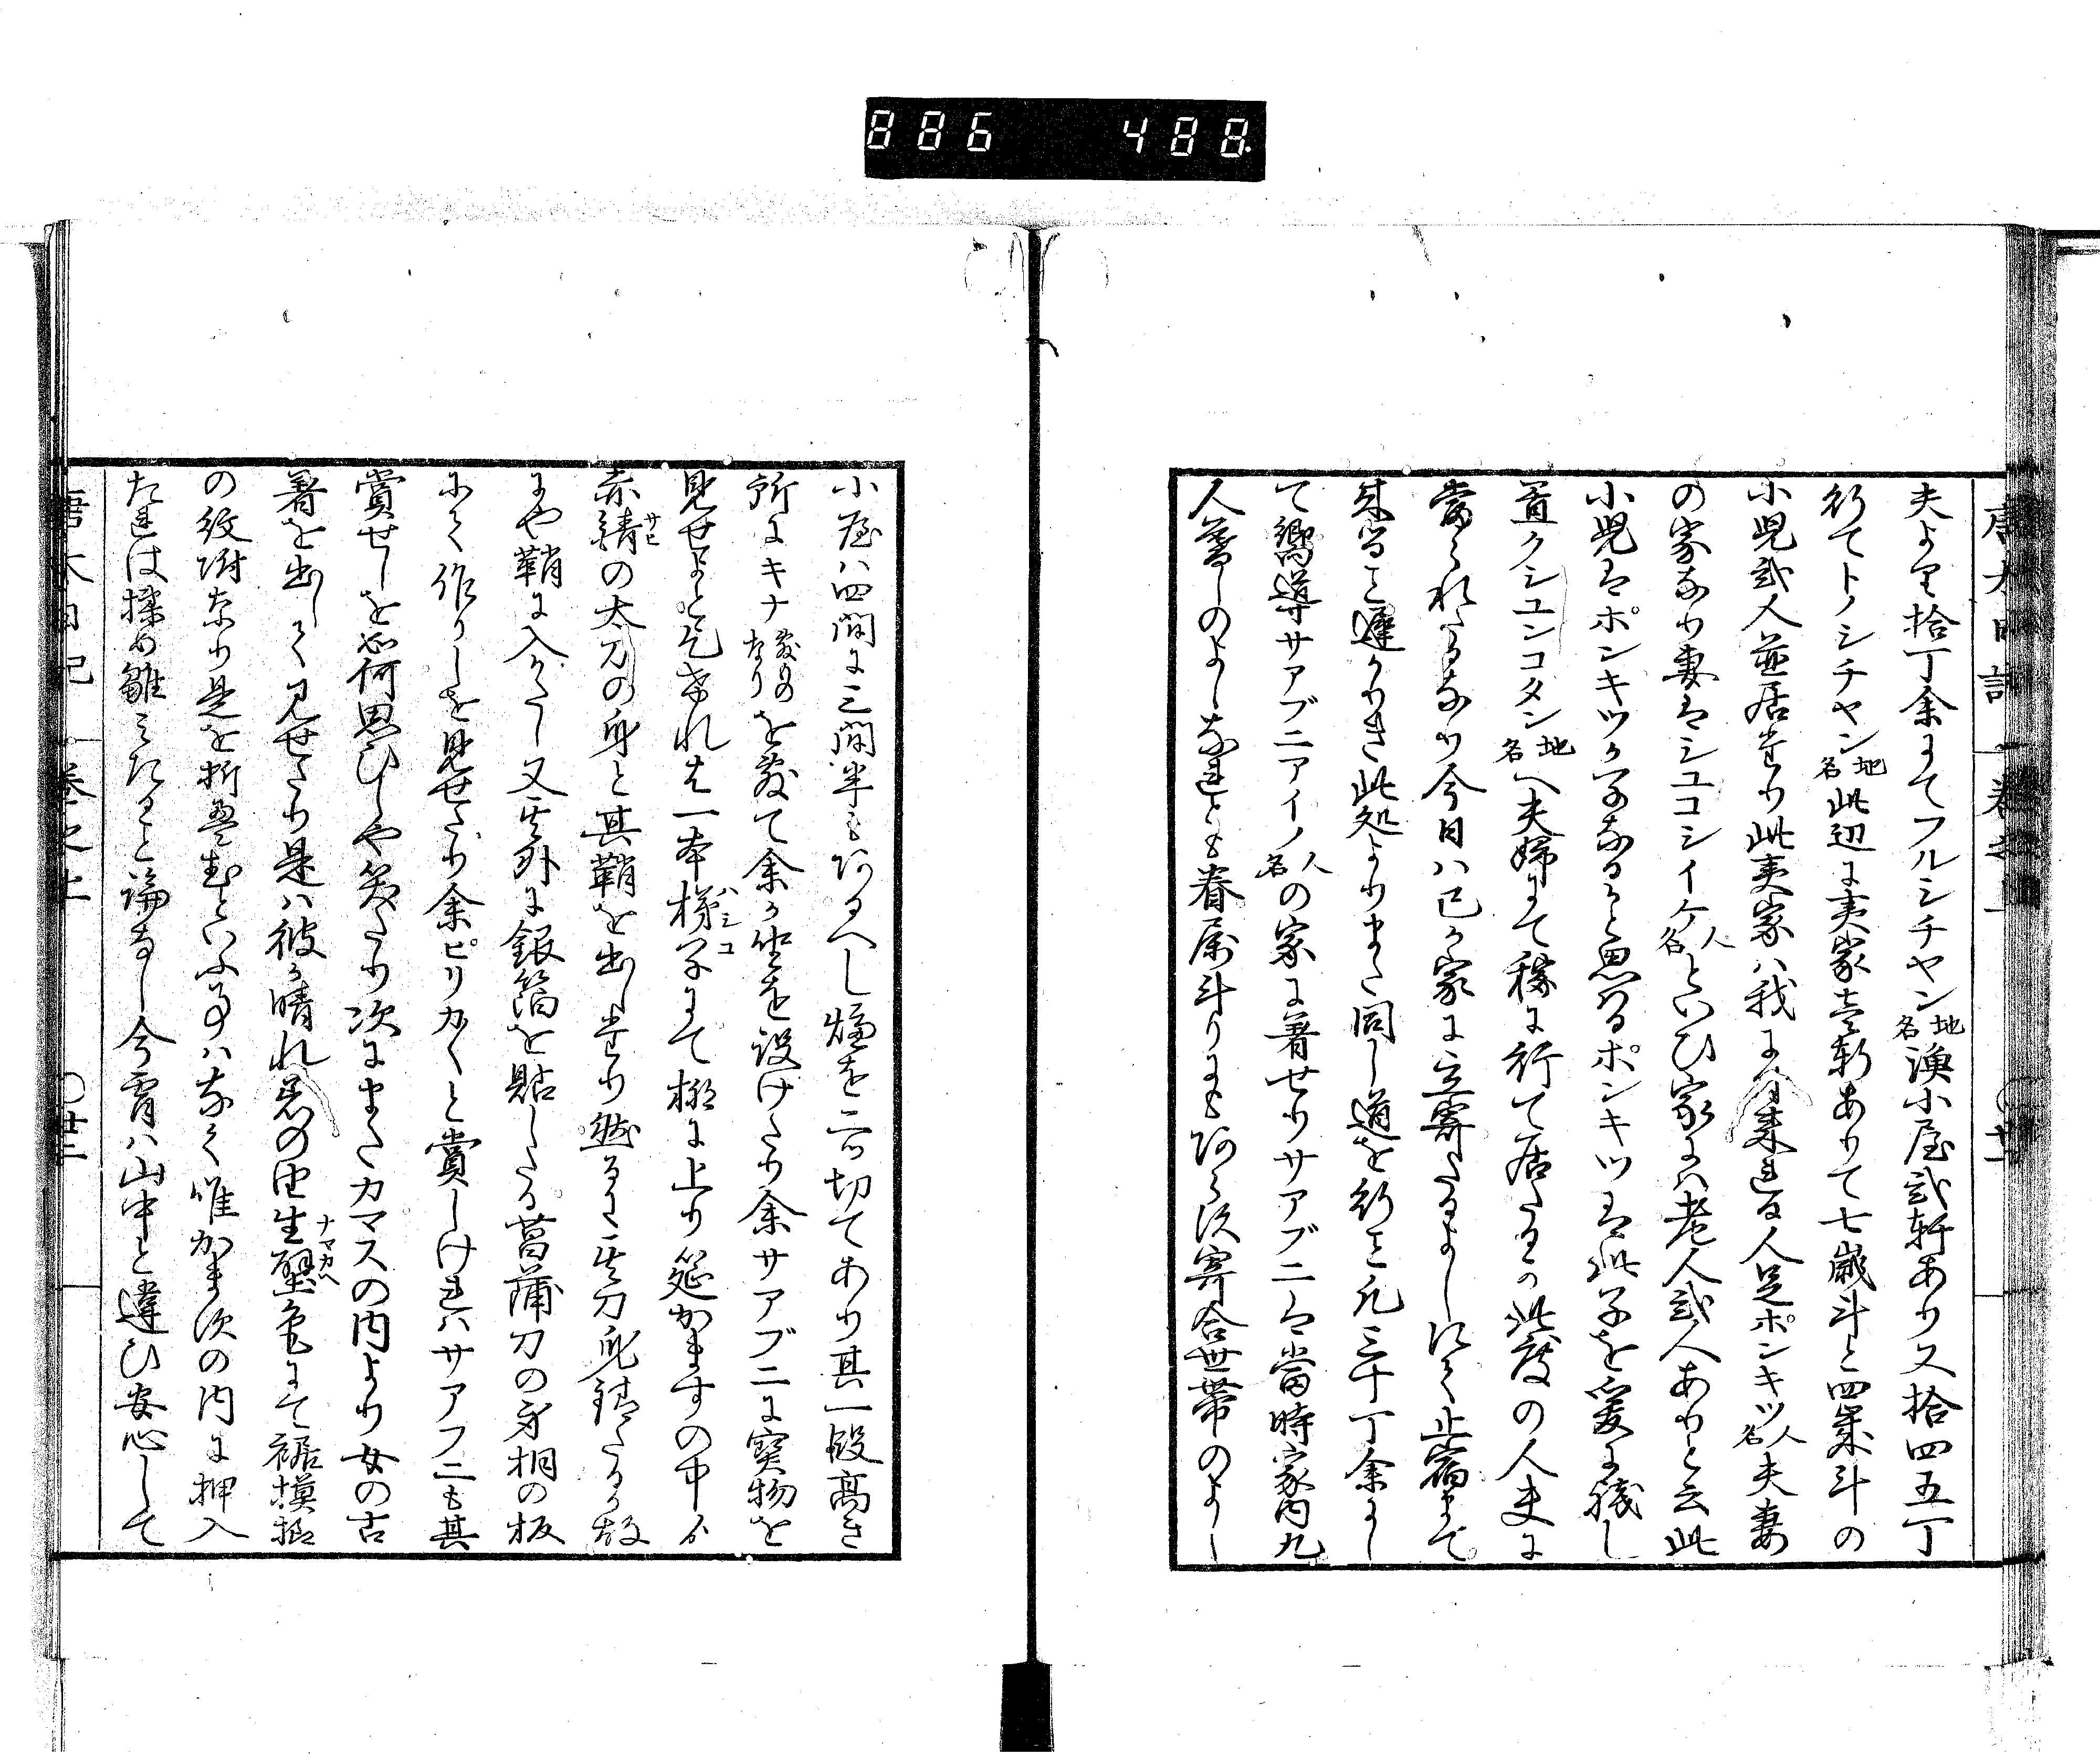 886 488
夫より拾丁余にてフルシチヤン地名漁小屋弐軒あり又拾四五丁
行てトノシチヤン地名此辺に夷家壱軒ありて七歳斗と四歳斗の
小児弐人並居たり此夷家ハ我に来れる人足ポンキツ人名夫妻
の家なり妻はシユコシイケ人名といひ家にハ老人弐人ありと云此
小児はポンキツか子なるかと思へるポンキツは此子を爰に残し
置クシユンコタン地名へ夫婦にて稼に行て居たるか此度の人夫に
当られたるなり今日ハ己か家に立寄たるよしにて止宿まで
来ること遅かりき此処よりまた同し道を行こと凡三十丁余にし
て嚮導サアブニアイノ人名の家に着せりサアブニは當時家内九
人暮しのよしなれとも眷属斗りにもあらす寄合世帯のよし
小屋ハ四間に三間半もあるへし爐を二ツ切てあり其一段高き
所にキナを敷て余か坐を設けたり余サアブニに宝物を
見せよと乞けれは一本梯子ハシコにて棚に上り筵かますの中より
赤錆サヒの太刀の身と其鞘を出したり然るに其刀身錆たる故
にや鞘に入かたし又其外に銀箔を貼したる菖蒲刀の身桐の板
にて作りしを見せたり余ピリカ〱と賞しけれハサアフニも其
賞せしを如何思ひしや笑たり次にまたカマスの内より女の古
着を出して見せたり是ハ彼か晴れ着の由生壁ナマカヘ色にて裾模様
の紋附なり是を折畳むといふ事ハなく唯かますの内に押入
たれは揉め皺みたること論なし今宵ハ山中と違ひ安心して